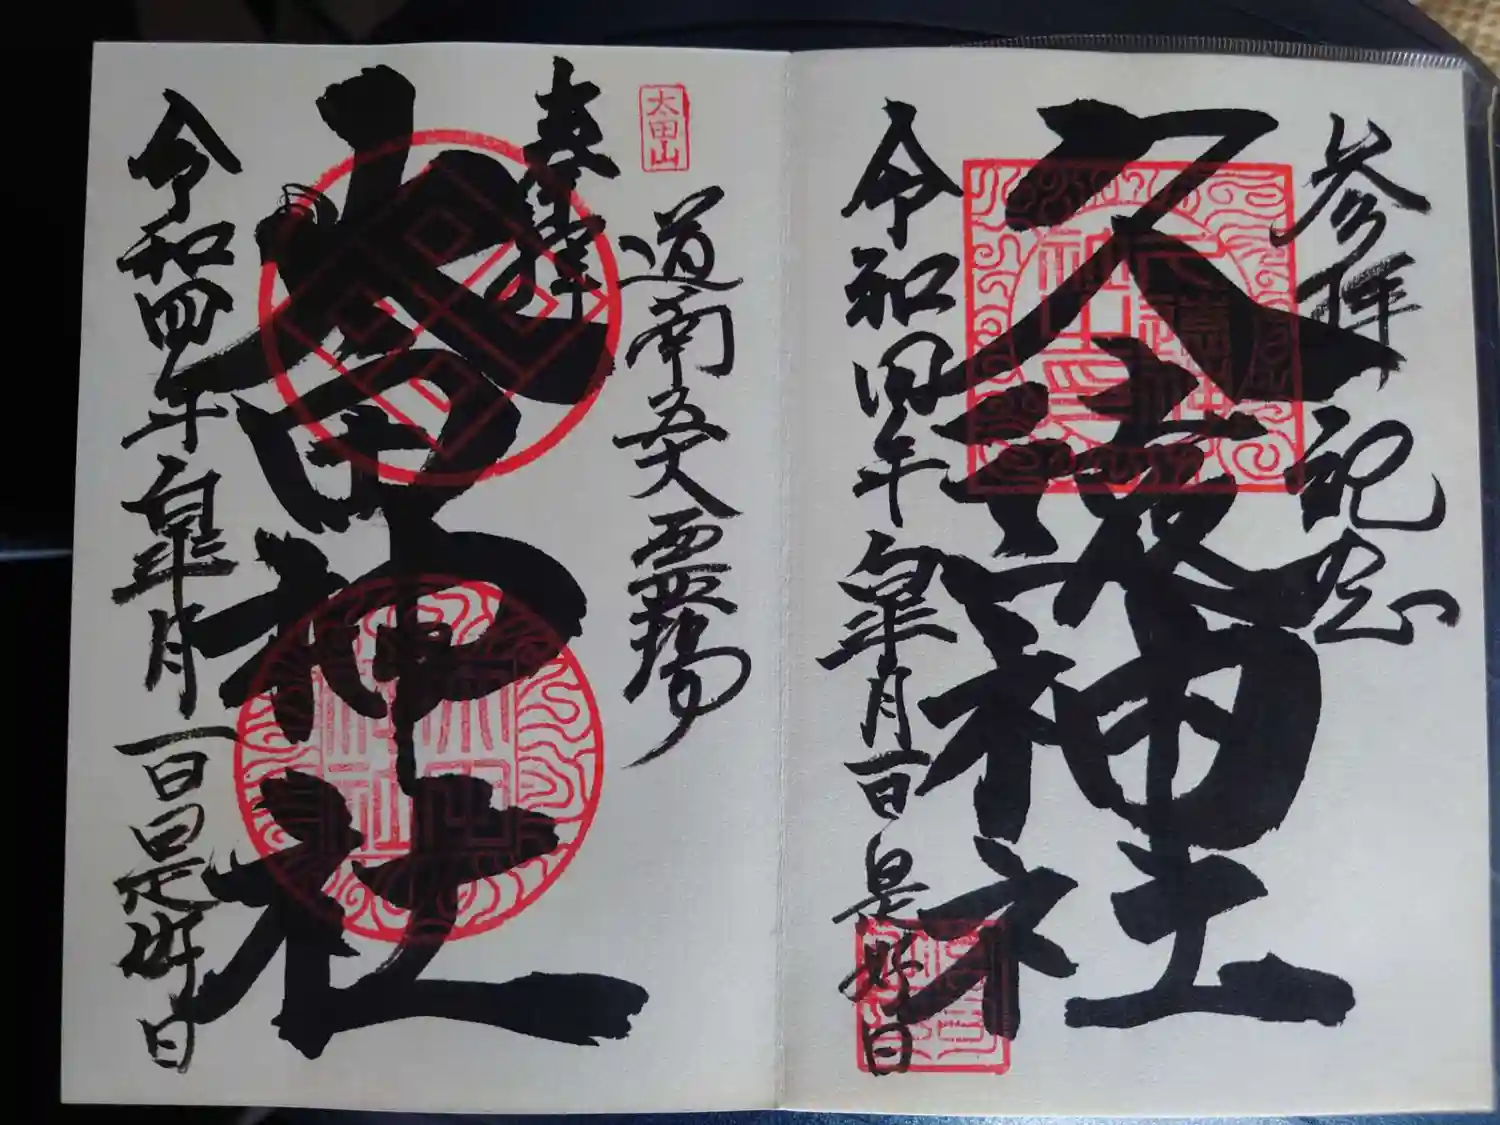 参拝記念
神社
令和四年皐月一日是好日
太田山
道南五大霊場
奉拝
太田神社
令和四年皐月一日日是好日